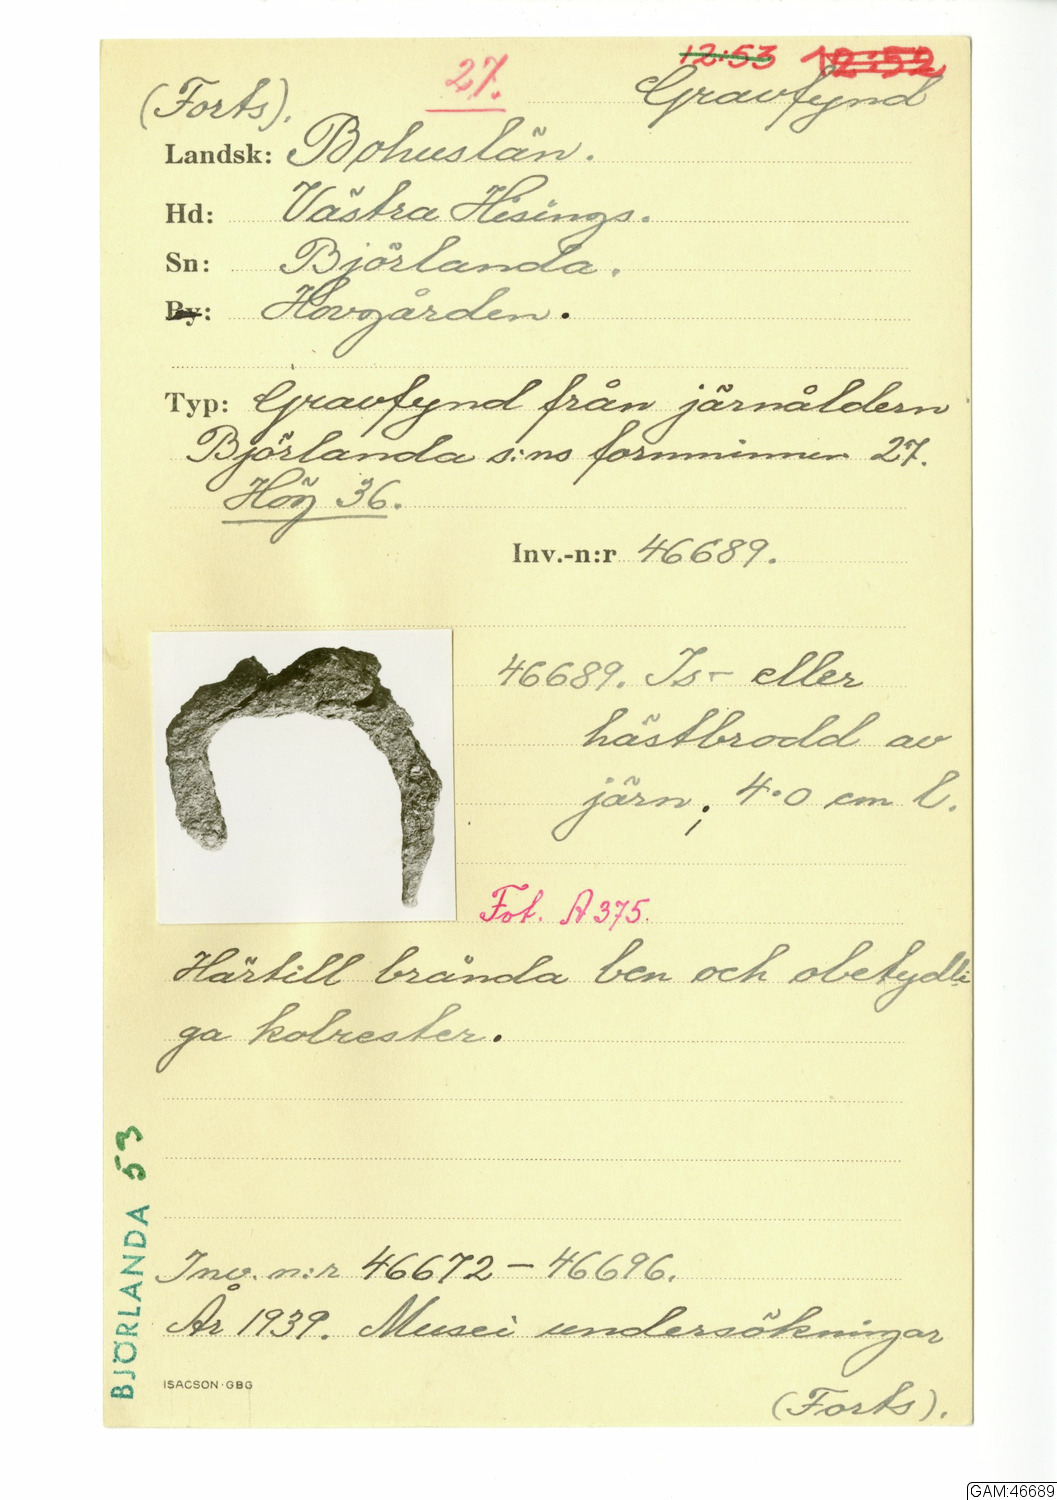 12:53 12:52
27.
(Forts). Gravfynd
Landsk: Bohuslän.
Hd: Västra Hisings.
Sn: Björlanda.
By: Hovgården.
Typ: Gravfynd från järnåldern
Björlanda s:ns fornminnen 27.
Hög 36.
Inv.-n:r 46689.
46689. Is- eller
hästbrodd av
järn; 4.0 cm l.
Fot. A 375.
Härtill brända ben och obetydli
ga kolrester.
Inv. n:r 46672 – 46696.
År 1939. Musei undersökningar
ISACSON·GBG
(Forts).
BJÖRLANDA 53
GAM:46689